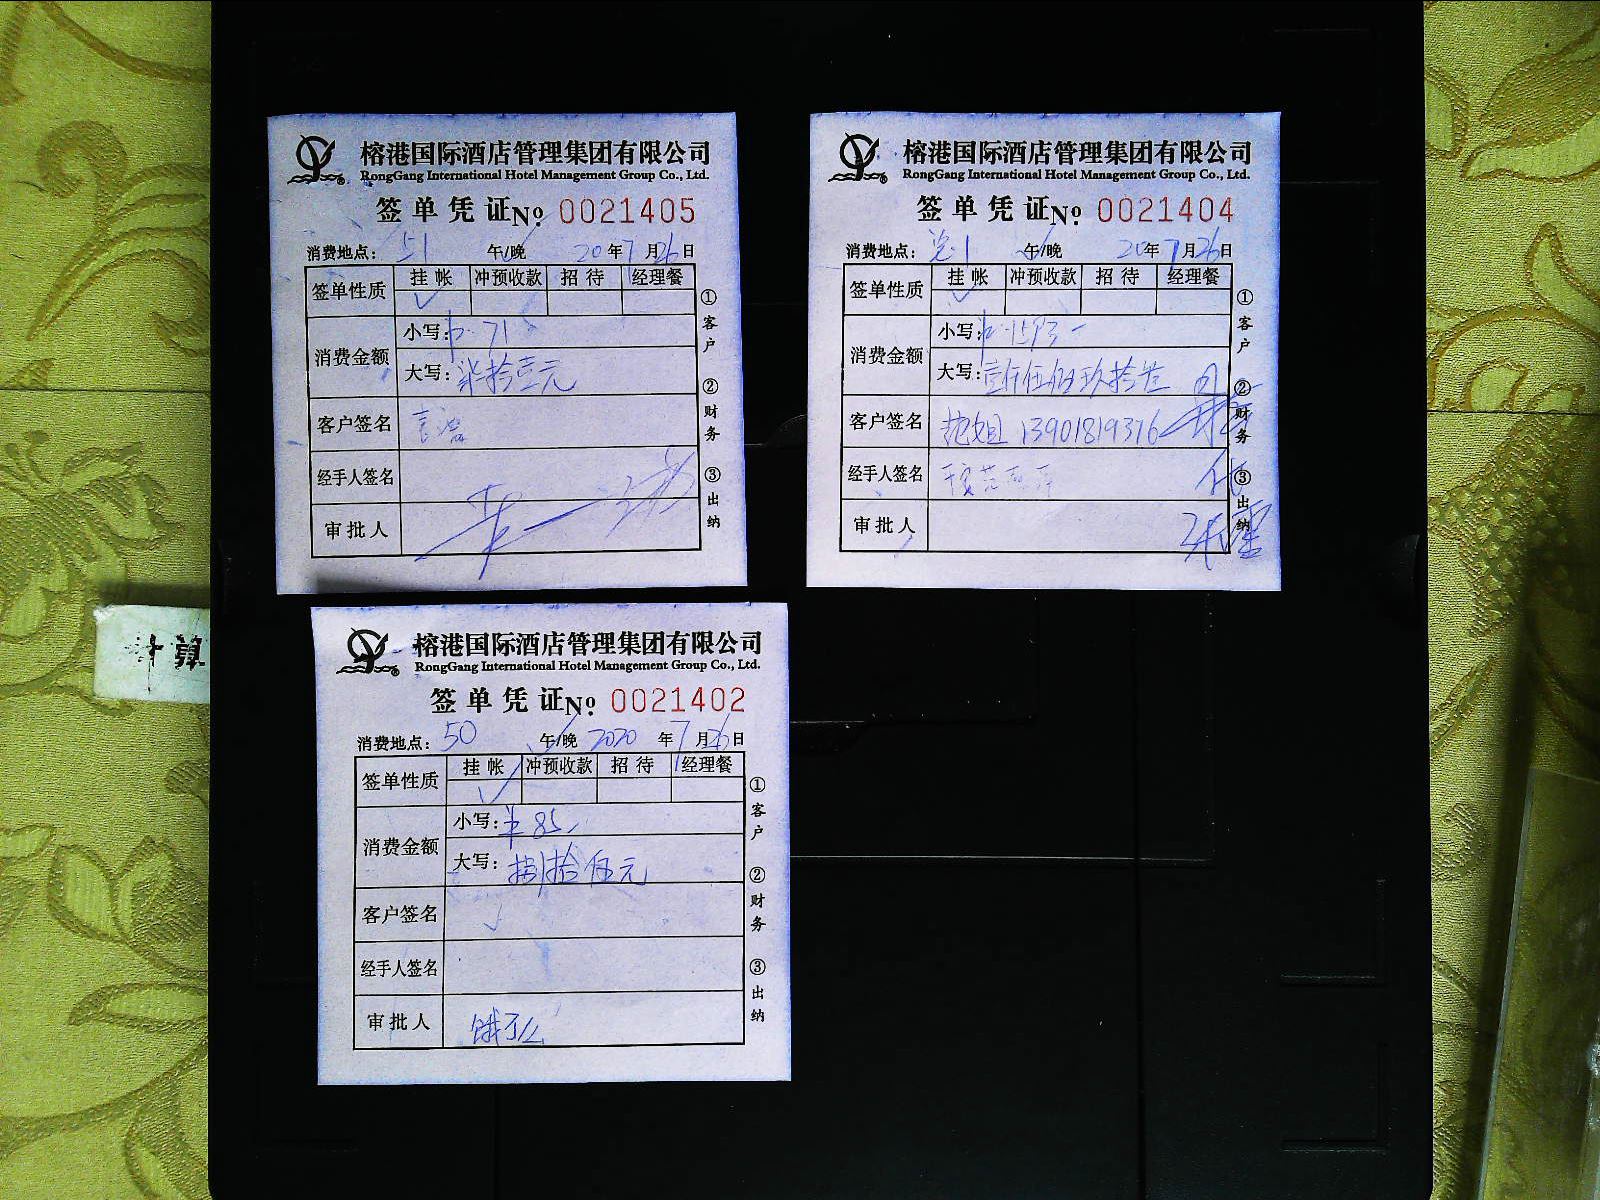 榕港国际酒店管理集团有限公司
RongGang International Hotel Management Group Co., Ltd.
签单凭证 No. 0021405
消费地点: 51 午/晚 20年7月26日
签单性质 挂帐 冲预收款 招待 经理餐
消费金额 小写: 71
大写: 柒拾壹元
客户签名
经手人签名
审批人
①客户 ②财务 ③出纳
榕港国际酒店管理集团有限公司
RongGang International Hotel Management Group Co., Ltd.
签单凭证 No. 0021404
消费地点: 午/晚 20年7月26日
签单性质 挂帐 冲预收款 招待 经理餐
消费金额 小写: 1593
大写: 壹仟伍佰玖拾叁
客户签名 13901819376
经手人签名
审批人
①客户 ②财务 ③出纳
榕港国际酒店管理集团有限公司
RongGang International Hotel Management Group Co., Ltd.
签单凭证 No. 0021402
消费地点: 50 午/晚 2020年7月26日
签单性质 挂帐 冲预收款 招待 经理餐
消费金额 小写: ¥85
大写: 捌拾伍元
客户签名
经手人签名
审批人 饿了么
①客户 ②财务 ③出纳
计算